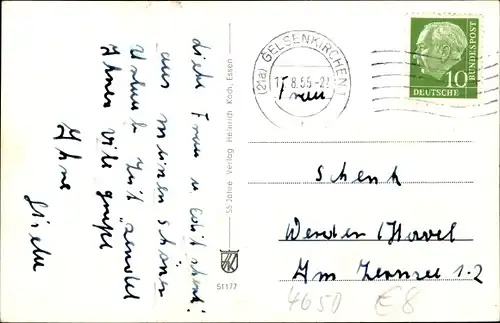 Liebe Frau u. Edit Schenk!
aus meinen schönen
Urlaub Zeit sendet
Ihnen viele Grüße
Ihre
Gisela
55 Jahre Verlag Heinrich Koch, Essen
51177
(21a) GELSENKIRCHEN 1
8.55-2
DEUTSCHE
BUNDESPOST
10
Frau
Schenk
Werder/Havel
Am Zernsee 1-2
4650 E8